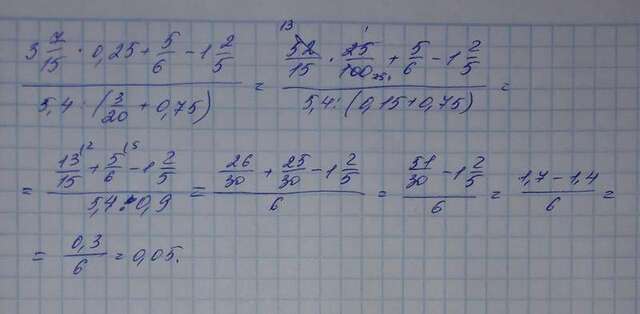 (3 7/15 · 0,25 + 5/6 - 1 2/5) / (5,4 : (3/20 + 0,75)) = (52/15 · 25/100 + 5/6 - 1 2/5) / (5,4 : (0,15 + 0,75)) =
= (13/15 + 5/6 - 1 2/5) / (5,4 : 0,9) = (26/30 + 25/30 - 1 2/5) / 6 = (51/30 - 1 2/5) / 6 = (1,7 - 1,4) / 6 =
= 0,3/6 = 0,05.